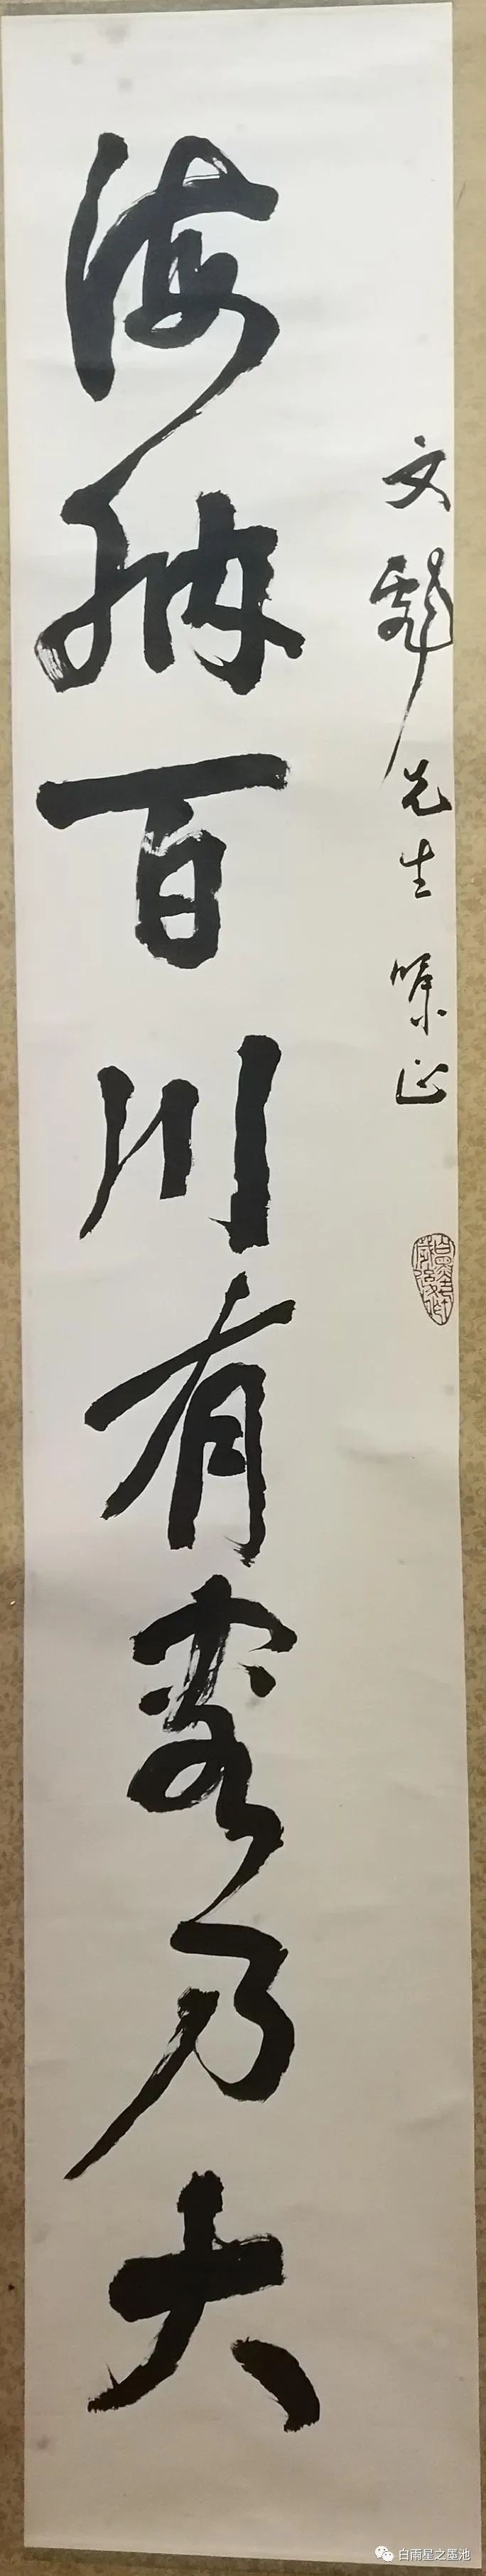 文彪先生嘱正
海纳百川有容乃大
白雨星之墨池